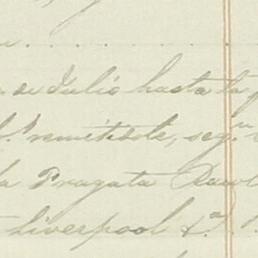 de Julio hasta la
remitiste, seg.n
la Fragata
Liverpool &.a